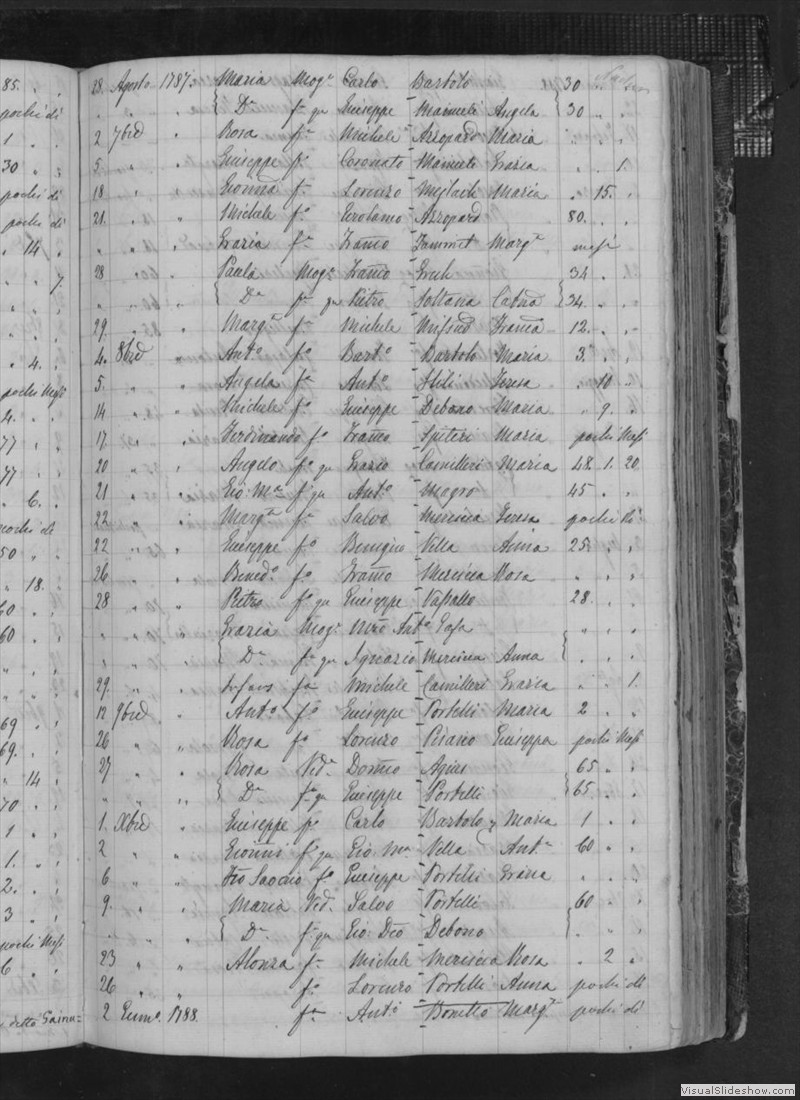 85. " "
pochi di
1 " "
30 " "
pochi di
pochi di
" 14 "
" " 7.
" 4. "
pochi Mesi
4. " "
77 " "
77 " "
" 6. "
pochi di
50 " "
" 18. "
60 " "
60 " "
69 " "
69. " "
" 14 "
70 " "
1 " "
1. " "
2. " "
3 " "
pochi Mesi
6 " "
detto Gainu=
28. Agosto 1787. Maria Mog.e Carlo Bartolo 30
" " " { Da f.a qu Giuseppe Mamuli Angela { 30 " "
2 7bre " Rosa f.a Michele Azzopardi Maria " " "
5. " " Giuseppe f.o Coronato Mamuli Grazia " " 1.
18 " " f.a Lorenzo Maria " 15. "
21. " " Michele f.o Girolamo Azzopard 80. " "
" " " Grazia f.a Franco Zammit Marg.a mesi
28 " " Paula Mog.e Franco Grech 34. " "
" " " { Da f.a qu Pietro Soltana { 34. " "
29. " " Marg.a f.a Michele Mifsud 12. " "
4. 8bre " Ant.o f.o Bart.o Bartolo Maria 3. "
5. " " Angela f.a Ant.o Stili Teresa " 10 "
14 " " Michele f.o Giuseppe Debono Maria " 9. "
17. " " Ferdinando f.o Franco Spiteri Maria pochi Mesi
20 " " Angelo f.o qu Grazio Camilleri Maria 48. 1. 20.
21 " " Gio: Ma f.o qu Ant.o Magro 45 " "
22 " " Marg.a f.a Salvo Mercieca Teresa pochi di
22 " " Giuseppe f.o Benigno Villa Anna 25. " "
26 " " Bened.o f.o Franco Mercieca Rosa " " "
28 " " Pietro f.o qu Giuseppe Vassallo 28. " "
" " " Grazia Mog.e Ant.o " " "
" " " { Da f.a qu Ignazio Mercieca Anna { " " "
29. " " Infans f.a Michele Camilleri Grazia " " 1.
12 9bre " Ant.o f.o Giuseppe Portelli Maria 2 " "
26 " " Rosa f.a Lorenzo Pisano Giuseppa pochi Mesi
27 " " Rosa Ved.a Dom.co Agius 65 " "
" " " { Da f.a qu Giuseppe Portelli { 65. " "
1. Xbre " Giuseppe f.o Carlo Bartolo Maria 1 " "
2 " " f. qu Gio: Ma Villa Ant.a 60 " "
6 " " f.o Giuseppe Portelli Grazia " " "
9. " " Maria Ved.a Salvo Portelli 60 " "
" " " { Da f.a qu Gio: Debono { " "
23 " " Alonza f.a Michele Mercieca Rosa " 2 "
26 " " f.o Lorenzo Portelli Anna pochi di
2 Genn.o 1788. f.a Ant.o Bonello Marg.a pochi di
VisualSlideshow.com